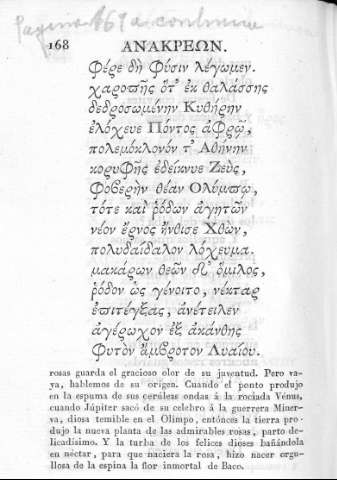 pagina 161 a continua
168 ΑΝΑΚΡΕΩΝ.
Φέρε δὴ φύσιν λέγωμεν.
χαροπῆς ὅτ' ἐκ θαλάσσης
δεδροσωμένην Κυθήρην
ἐλόχευε Πόντος ἀφρῷ,
πολεμόκλονόν τ' Ἀθήνην
κορυφῆς ἐδείκνυε Ζεὺς,
φοβερὴν θέαν Ολύμπῳ,
τότε καὶ ῥόδων ἀγητῶν
νέον ἔρνος ἤνθισε Χθὼν,
πολυδαίδαλον λόχευμα.
μακάρων θεῶν δ' ὅμιλος,
ῥόδον ὡς γένοιτο, νέκταρ
ἐπιτέγξας, ἀνέτειλεν
ἀγέρωχον ἐξ ἀκάνθης
φυτὸν ἄμβροτον Λυαίου.
rosas guarda el gracioso olor de su juventud. Pero va-
ya, hablemos de su orígen. Cuando el ponto produjo
en la espuma de sus cerúleas ondas á la rociada Vénus,
cuando Júpiter sacó de su celebro á la guerrera Miner-
va, diosa temible en el Olimpo, entónces la tierra pro-
dujo la nueva planta de las admirables rosas, parto de-
licadísimo. Y la turba de los felices dioses bañándola
en néctar, para que naciera la rosa, hizo nacer orgu-
llosa de la espina la flor inmortal de Baco.